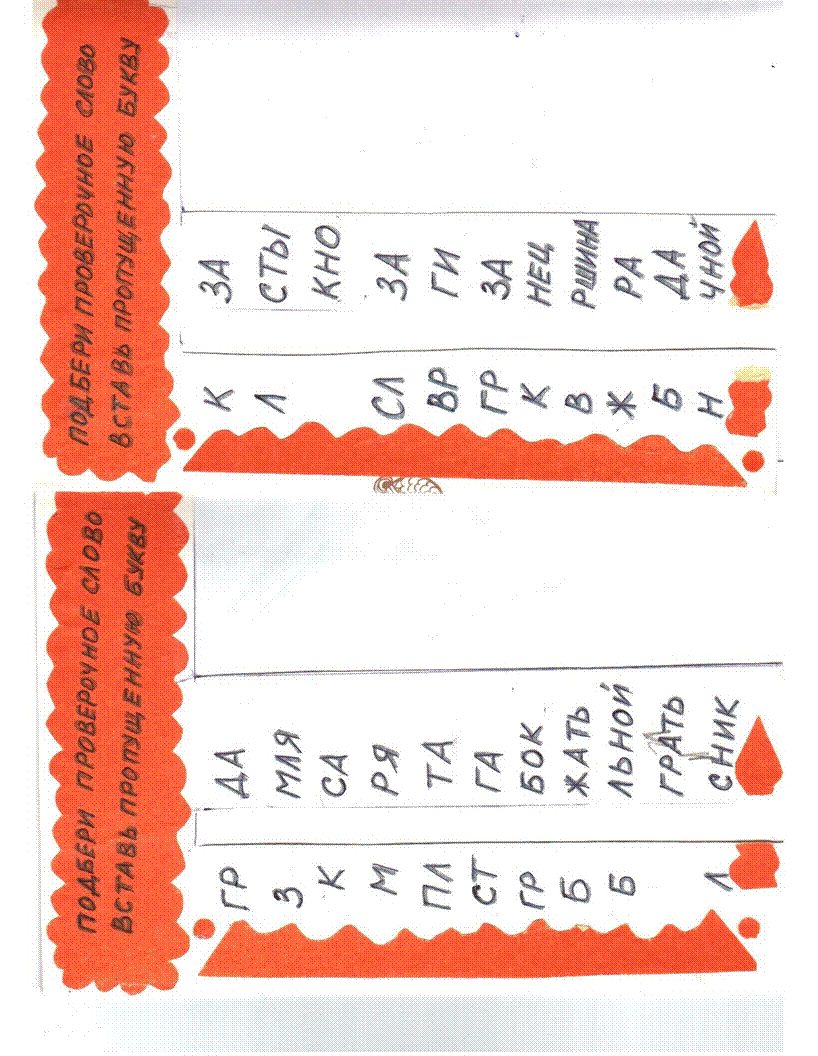 ПОДБЕРИ ПРОВЕРОЧНОЕ СЛОВО
ВСТАВЬ ПРОПУЩЕННУЮ БУКВУ
ГР ДА
З МЛЯ
К СА
М РЯ
ПЛ ТА
СТ ГА
ГР БОК
Б ЖАТЬ
Б ЛЬНОЙ
ГРАТЬ
Л СНИК
ПОДБЕРИ ПРОВЕРОЧНОЕ СЛОВО
ВСТАВЬ ПРОПУЩЕННУЮ БУКВУ
К ЗА
Л СТЫ
КНО
СЛ ЗА
ВР ГИ
ГР ЗА
К НЕЦ
В РШИНА
Ж РА
Б ДА
Н ЧНОЙ